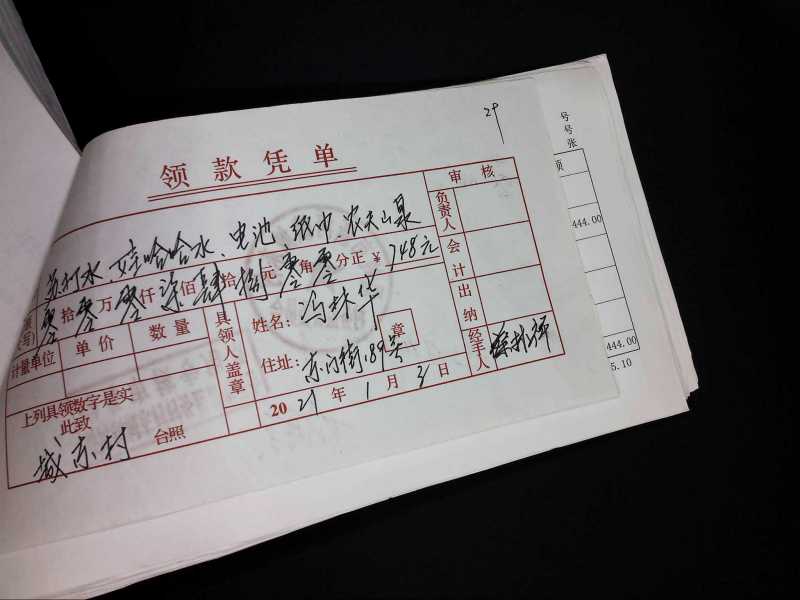 29
号
号
张
领款凭单
审核
苏打水、娃哈哈水、电池、纸巾、农夫山泉
负责人
零拾零万零仟柒佰肆拾捌元零角零分正 ¥748元
444.00
会计
计量单位 单价 数量
具领人盖章
姓名：冯林华
章
住址：东门街89号
出纳
经手人
444.00
5.10
上列具领数字是实
此致
2021年1月3日
城东村 台照